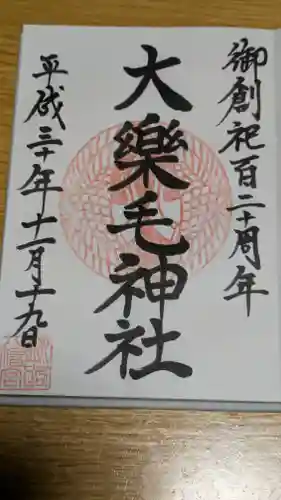 御創祀百二十周年
大樂毛神社
平成三十年十一月二十九日